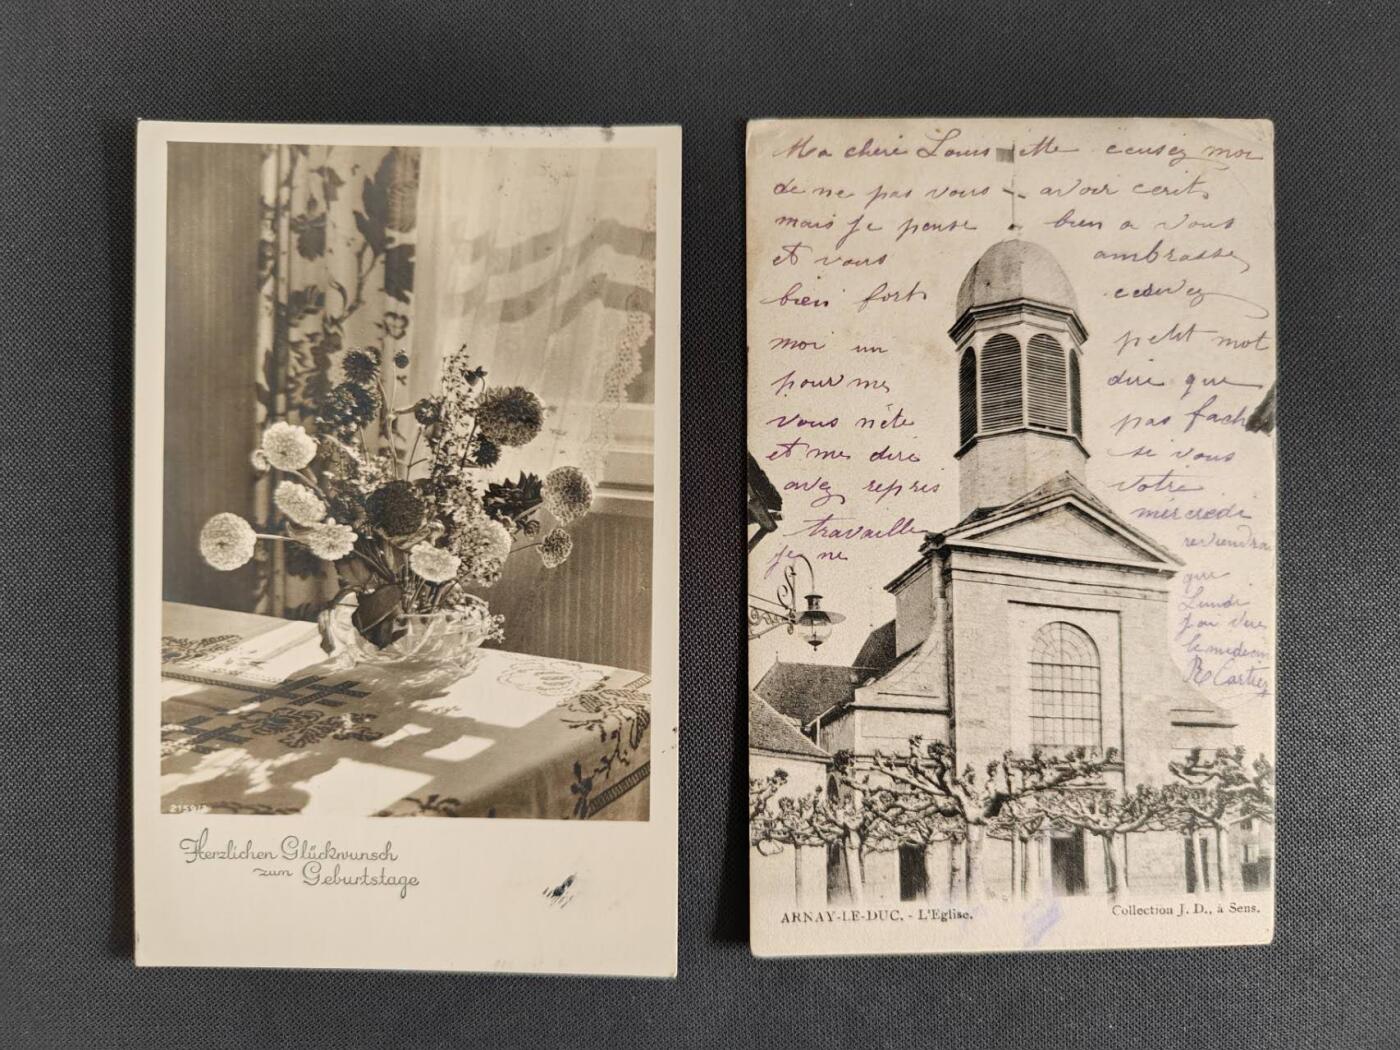 21591/2
Herzlichen Glückwunsch
zum Geburtstage
Ma cheri Louis ette ecusez moi
de ne pas vous avoir ecrit
mais je pense bien a vous
et vous ambrasse
bien fort ecrivez
moi un petit mot
pour me dire que
vous n'ete pas fach
et me dire si vous
avez repris votre
travaille mercredi
je ne reviendrai
que
Lundi
j'ai vu
le medecin
R Cartier
ARNAY-LE-DUC. - L'Eglise.
Collection J. D., à Sens.